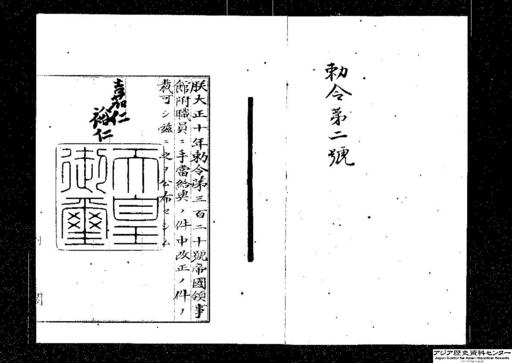 勅令第二號
朕大正十年勅令第三百二十號帝國領事
館附職員ニ手當給與ノ件中改正ノ件ヲ
裁可シ茲ニ之ヲ公布セシム
嘉仁
裕仁
天皇
御璽
アジア歴史資料センター
Japan Center for Asian Historical Records